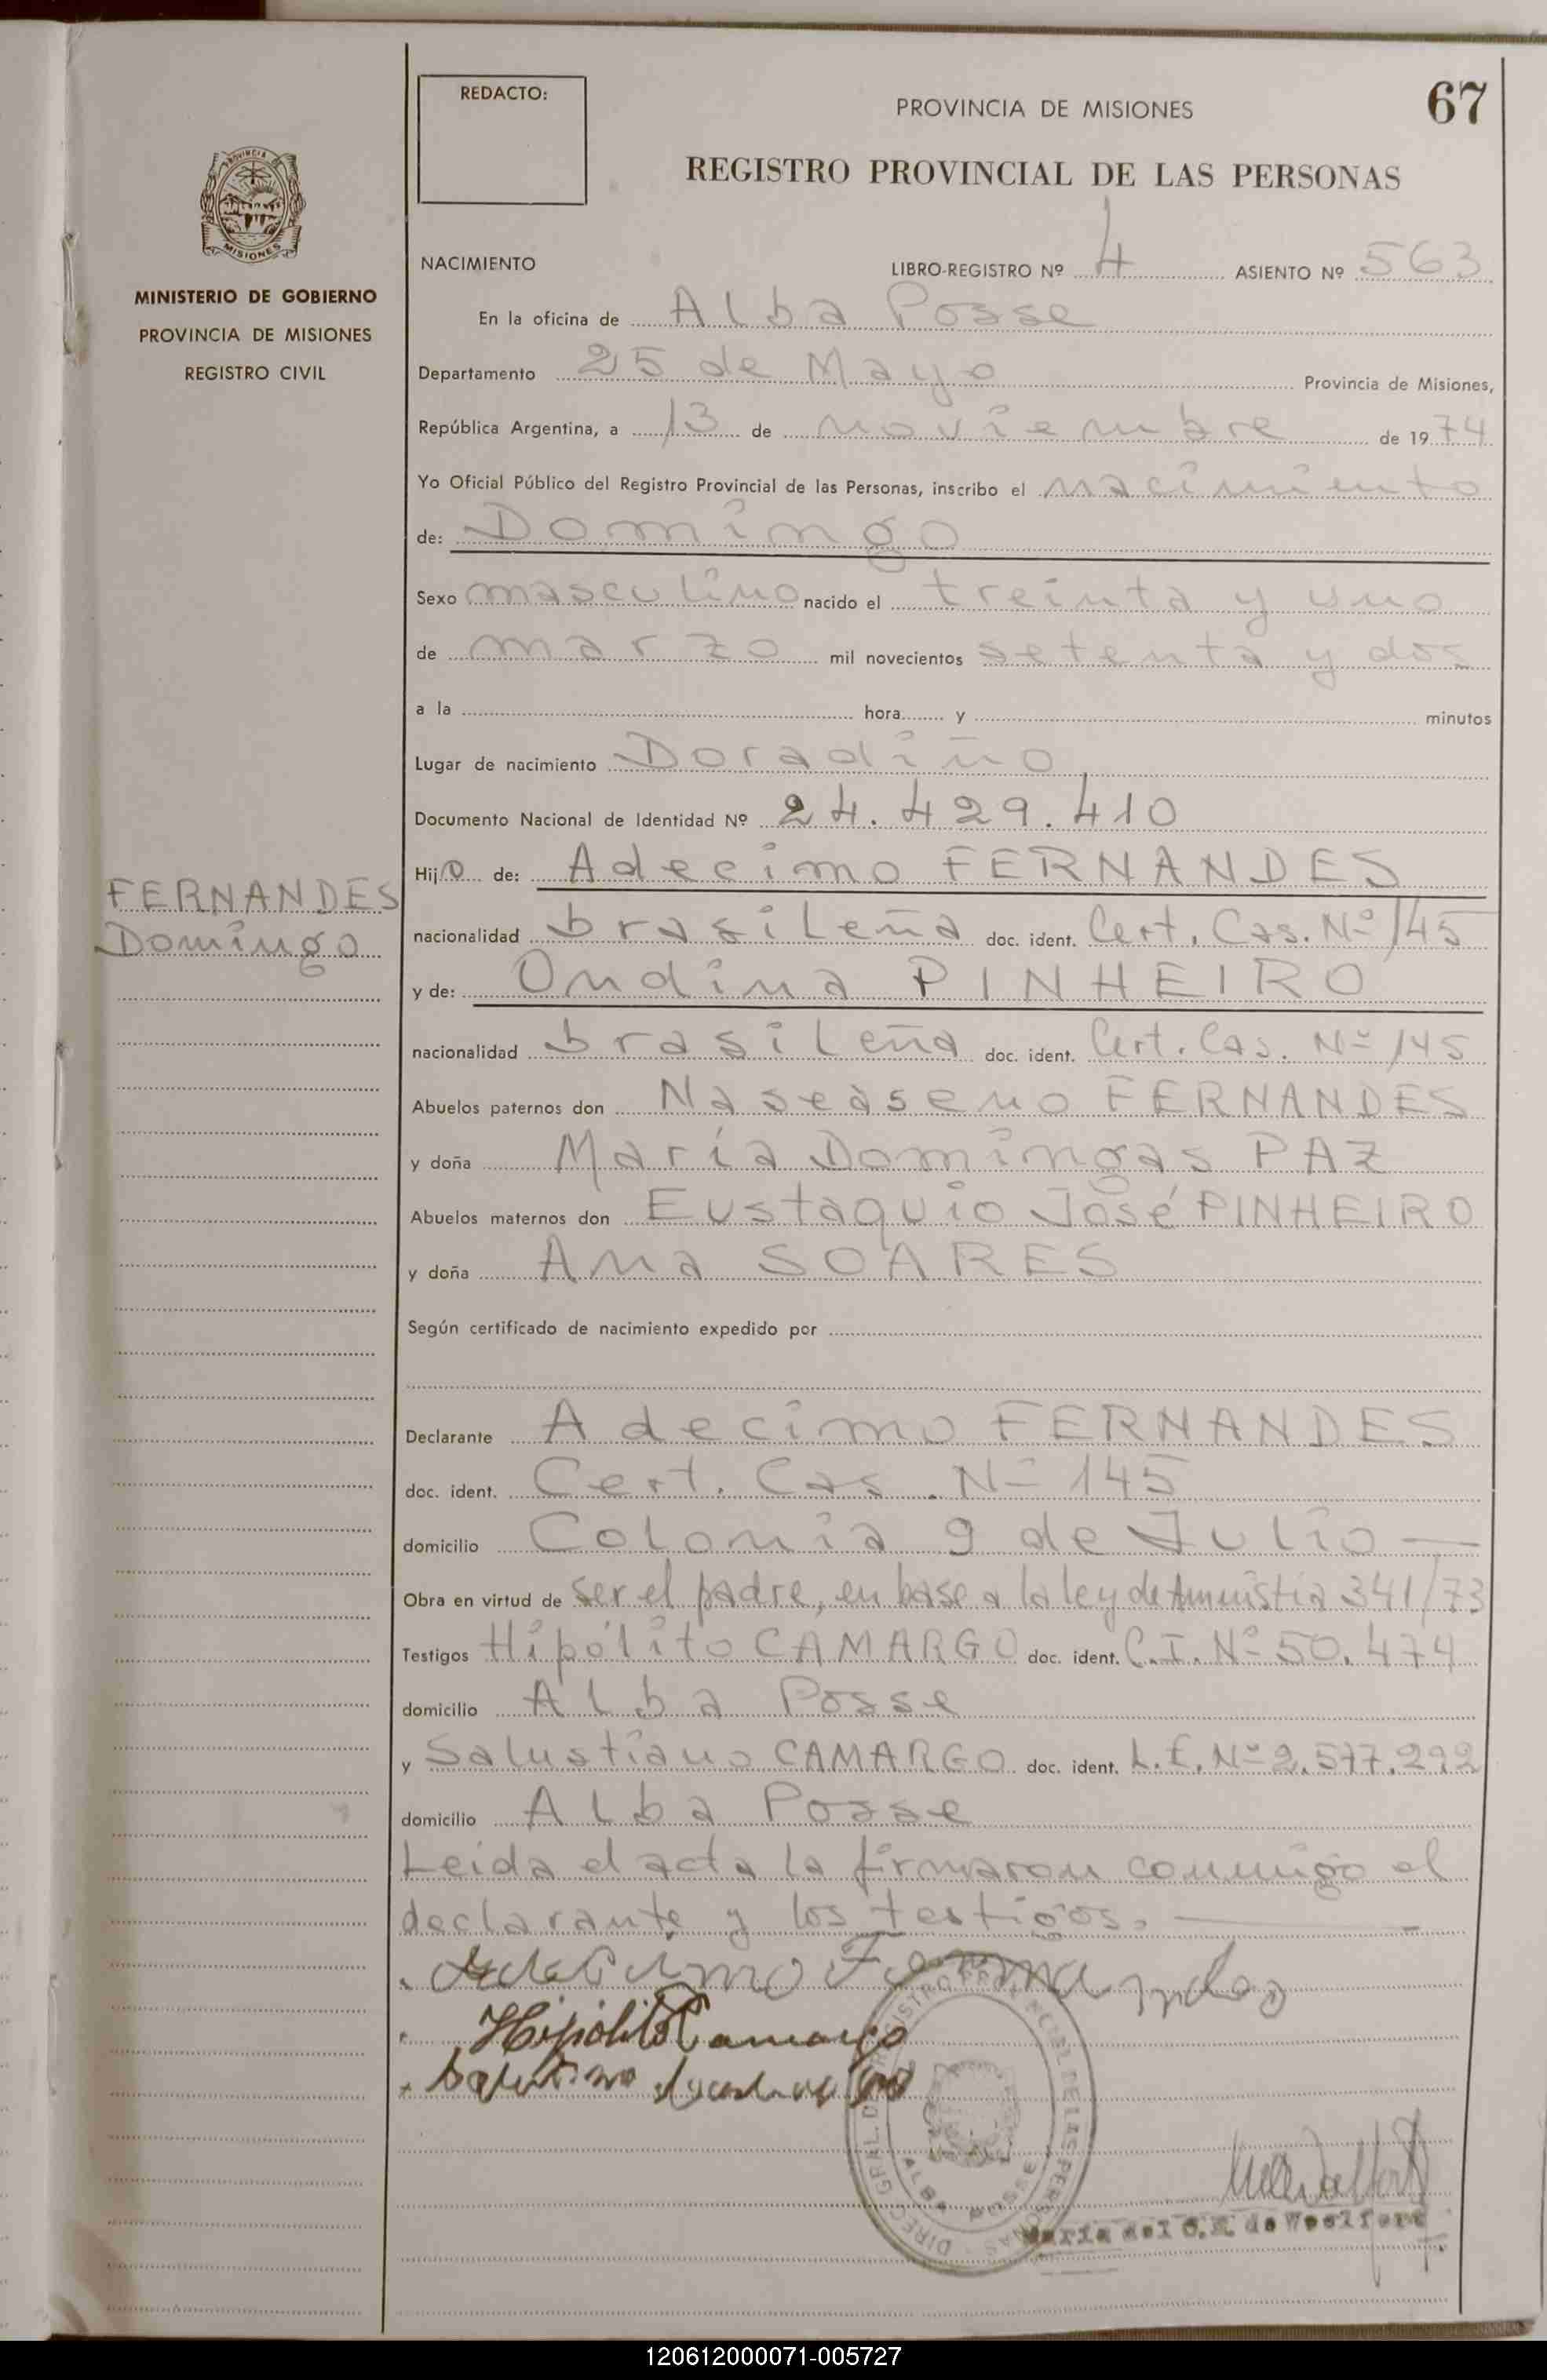 REDACTO:
PROVINCIA DE MISIONES
67
REGISTRO PROVINCIAL DE LAS PERSONAS
PROVINCIA DE
MISIONES
MINISTERIO DE GOBIERNO
PROVINCIA DE MISIONES
REGISTRO CIVIL
NACIMIENTO LIBRO-REGISTRO Nº 4 ASIENTO Nº 563
En la oficina de Alba Posse
Departamento 25 de Mayo Provincia de Misiones,
República Argentina, a 13 de noviembre de 1974
Yo Oficial Público del Registro Provincial de las Personas, inscribo el nacimiento
de: Domingo
Sexo masculino nacido el treinta y uno
de marzo mil novecientos setenta y dos
a la hora y minutos
Lugar de nacimiento Doradiño
Documento Nacional de Identidad Nº 24.429.410
Hijo de: Adecimo FERNANDES
FERNANDES
Domingo
nacionalidad brasileña doc. ident. Cert. Cas. Nº 145
y de: Ondina PINHEIRO
nacionalidad brasileña doc. ident. Cert. Cas. Nº 145
Abuelos paternos don Naseaseno FERNANDES
y doña María Domingas PAZ
Abuelos maternos don Eustaquio José PINHEIRO
y doña Ana SOARES
Según certificado de nacimiento expedido por
Declarante Adecimo FERNANDES
doc. ident. Cert. Cas. Nº 145
domicilio Colonia 9 de Julio —
Obra en virtud de ser el padre, en base a la ley de Amnistia 341/73
Testigos Hipólito CAMARGO doc. ident. C.I. Nº 50.474
domicilio Alba Posse
y Salustiano CAMARGO doc. ident. L.E. Nº 2.577.292
domicilio Alba Posse
Leida el acta la firmaron conmigo el
declarante y los testigos. —
Adecimo Fernandes
Hipólito Camargo
DIREC. GRAL. DEL REGISTRO PROVINCIAL DE LAS PERSONAS
ALBA POSSE
María del C. R. de Woolfert
120612000071-005727